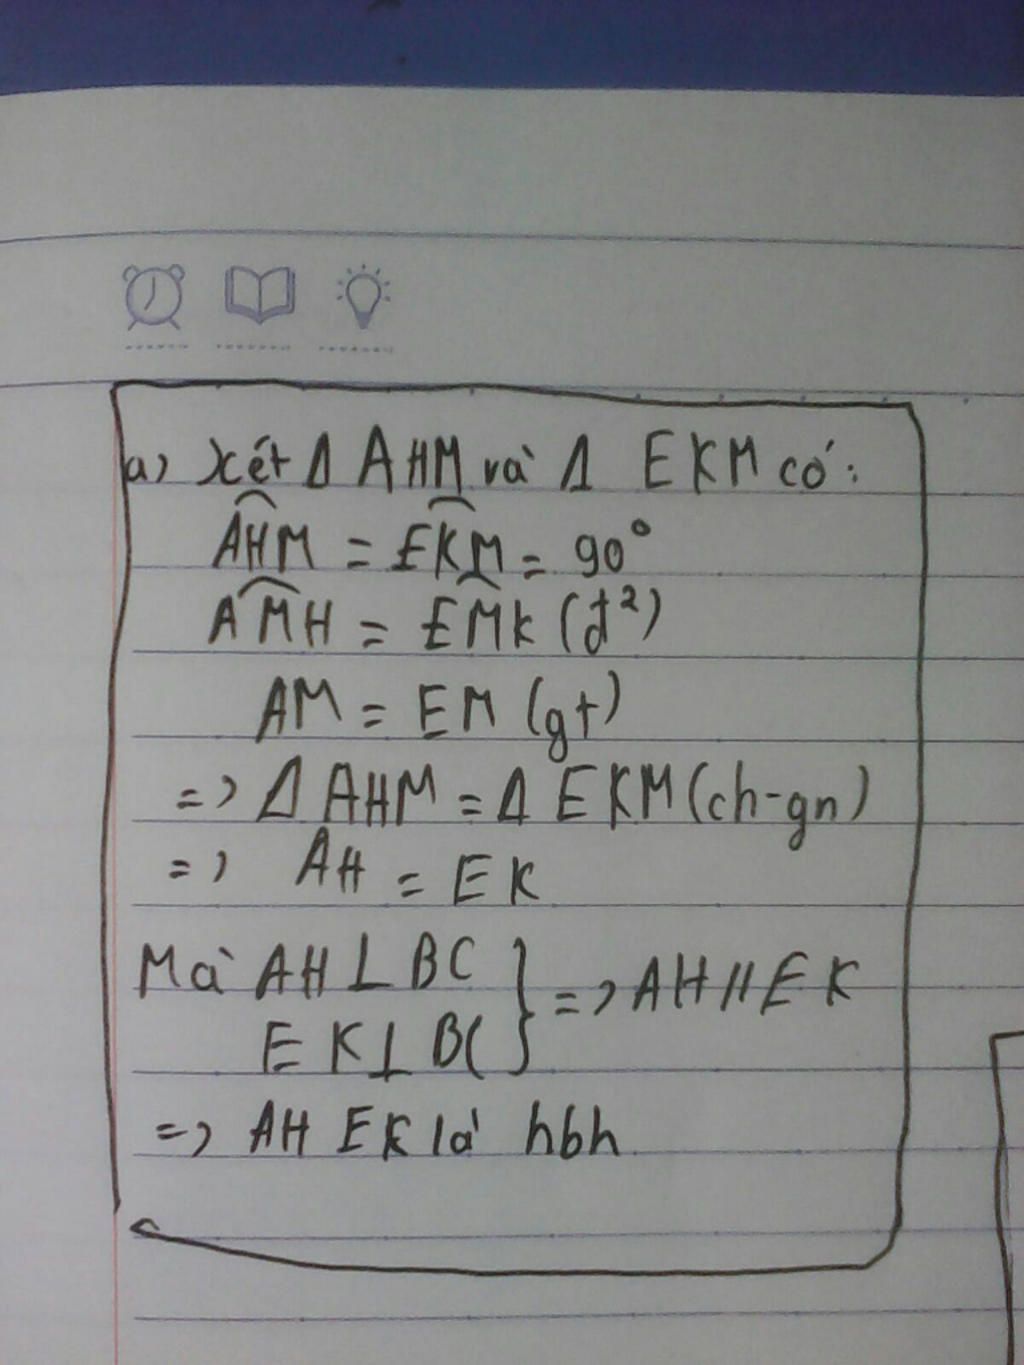 a) Xét Δ AHM và Δ EKM có:
\widehat{AHM} = \widehat{EKM} = 90°
\widehat{AMH} = \widehat{EMK} (đ²)
AM = EM (gt)
=> Δ AHM = Δ EKM (ch-gn)
=> AH = EK
Mà AH ⊥ BC
EK ⊥ BC } => AH // EK
=> AH EK là hbh